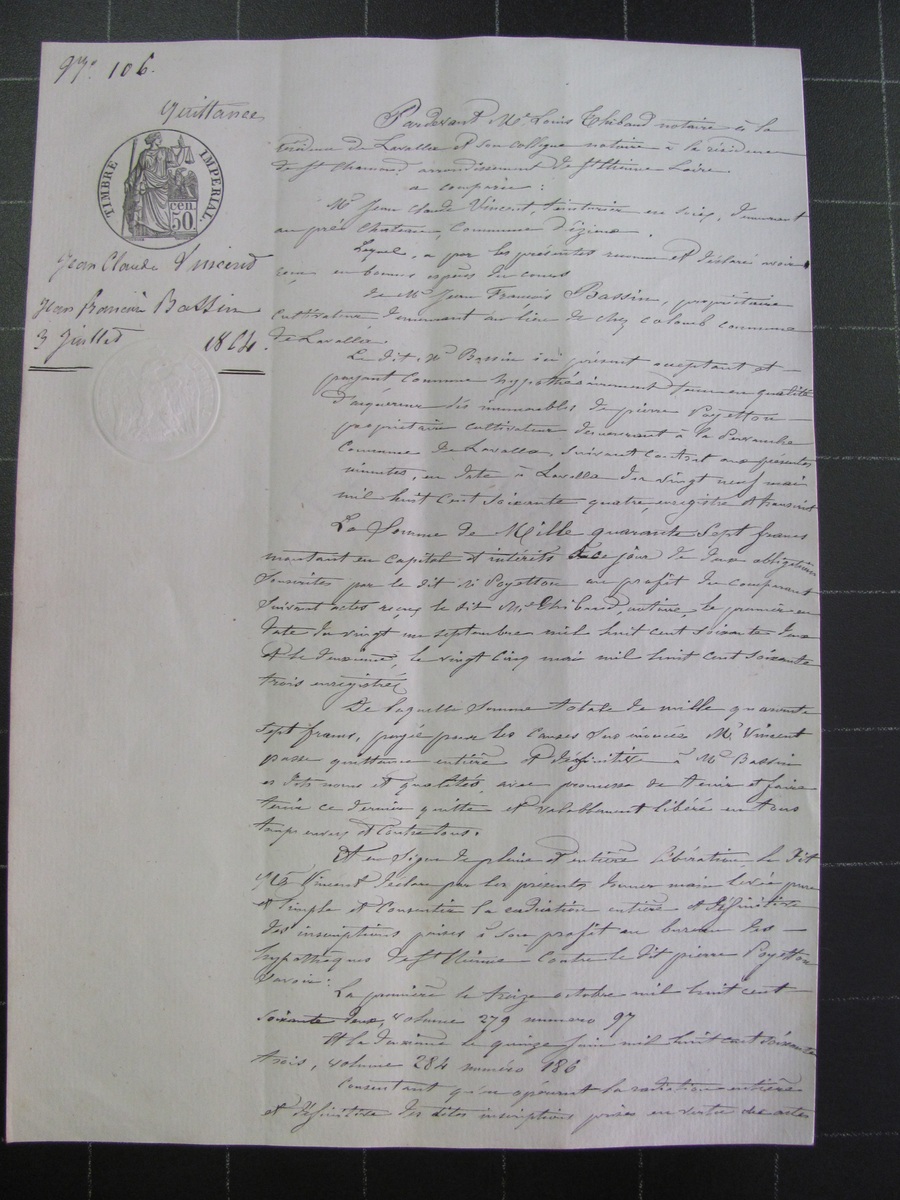 N° 106.
Quittance
TIMBRE IMPERIAL.
cen. 50
Jean Claude Vincend
Jean François Bassin
3 Juillet 1864.
Pardevant Me Louis Thibaud notaire à la
résidence de Lavalla et son collègue notaire à la résidence
de St Chamond arrondissement de St Etienne Loire.
a comparu :
Mr Jean Claude Vincent, teinturier en soies, demeurant
au pré Château, commune d'izieux.
Lequel, a par les présentes reconnu et déclaré avoir
reçu, en bonnes espèces du cours
de Mr Jean François Bassin, propriétaire
cultivateur demeurant au lieu de chez Colomb commune
de Lavalla.
Le dit Mr Bassin ici présent acceptant et
payant comme hypothécairement tenu en qualité
d'acquéreur des immeubles de pierre Poyetton
propriétaire cultivateur demeurant à la
Commune de Lavalla, suivant contrat aux présentes
minutes, en date à Lavalla du vingt neuf mai
mil huit cent soixante quatre, enregistré et transcrit
La Somme de Mille quarante Sept francs
montant en capital et intérêts à ce jour de deux obligations
souscrites par le dit Poyetton au profit du comparant
suivant actes reçus le dit Me Thibaud, notaire, le premier en
date du vingt un septembre mil huit cent soixante deux
et le deuxième, le vingt cinq mai mil huit cent soixante
trois enregistrés
De laquelle somme totale de mille quarante
sept francs, payée pour les causes sus énoncées Mr Vincent
passe quittance entière et définitive à Mr Bassin
es dits noms et qualités, avec promesse de tenir et faire
tenir ce dernier quitte et valablement libéré en tous
temps envers et contre tous.
Et en signe de pleine et entière libération le dit
Mr Vincent déclare par les présentes donner main levée pure
et simple et consentir la radiation entière et définitive
des inscriptions prises à son profit au bureau des
hypothèques de St Etienne contre le dit pierre Poyetton
savoir :
La première le treize octobre mil huit cent
soixante deux, volume 279 numero 97
Et la deuxième le quinze Juin mil huit cent soixante
trois, volume 284 numéro 186
Consentant qu'en opérant la radiation entière
et définitive des dites inscriptions prises en vertu des actes